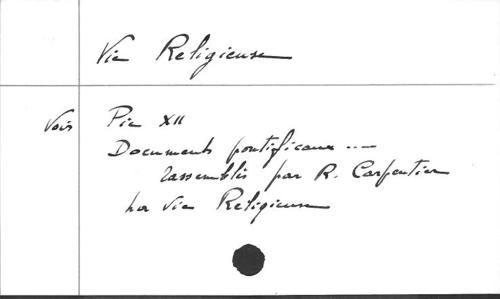 Vie Religieuse
Voir Pie XII
Documents pontificaux ....
rassemblés par R. Carpentier
Vie Religieuse